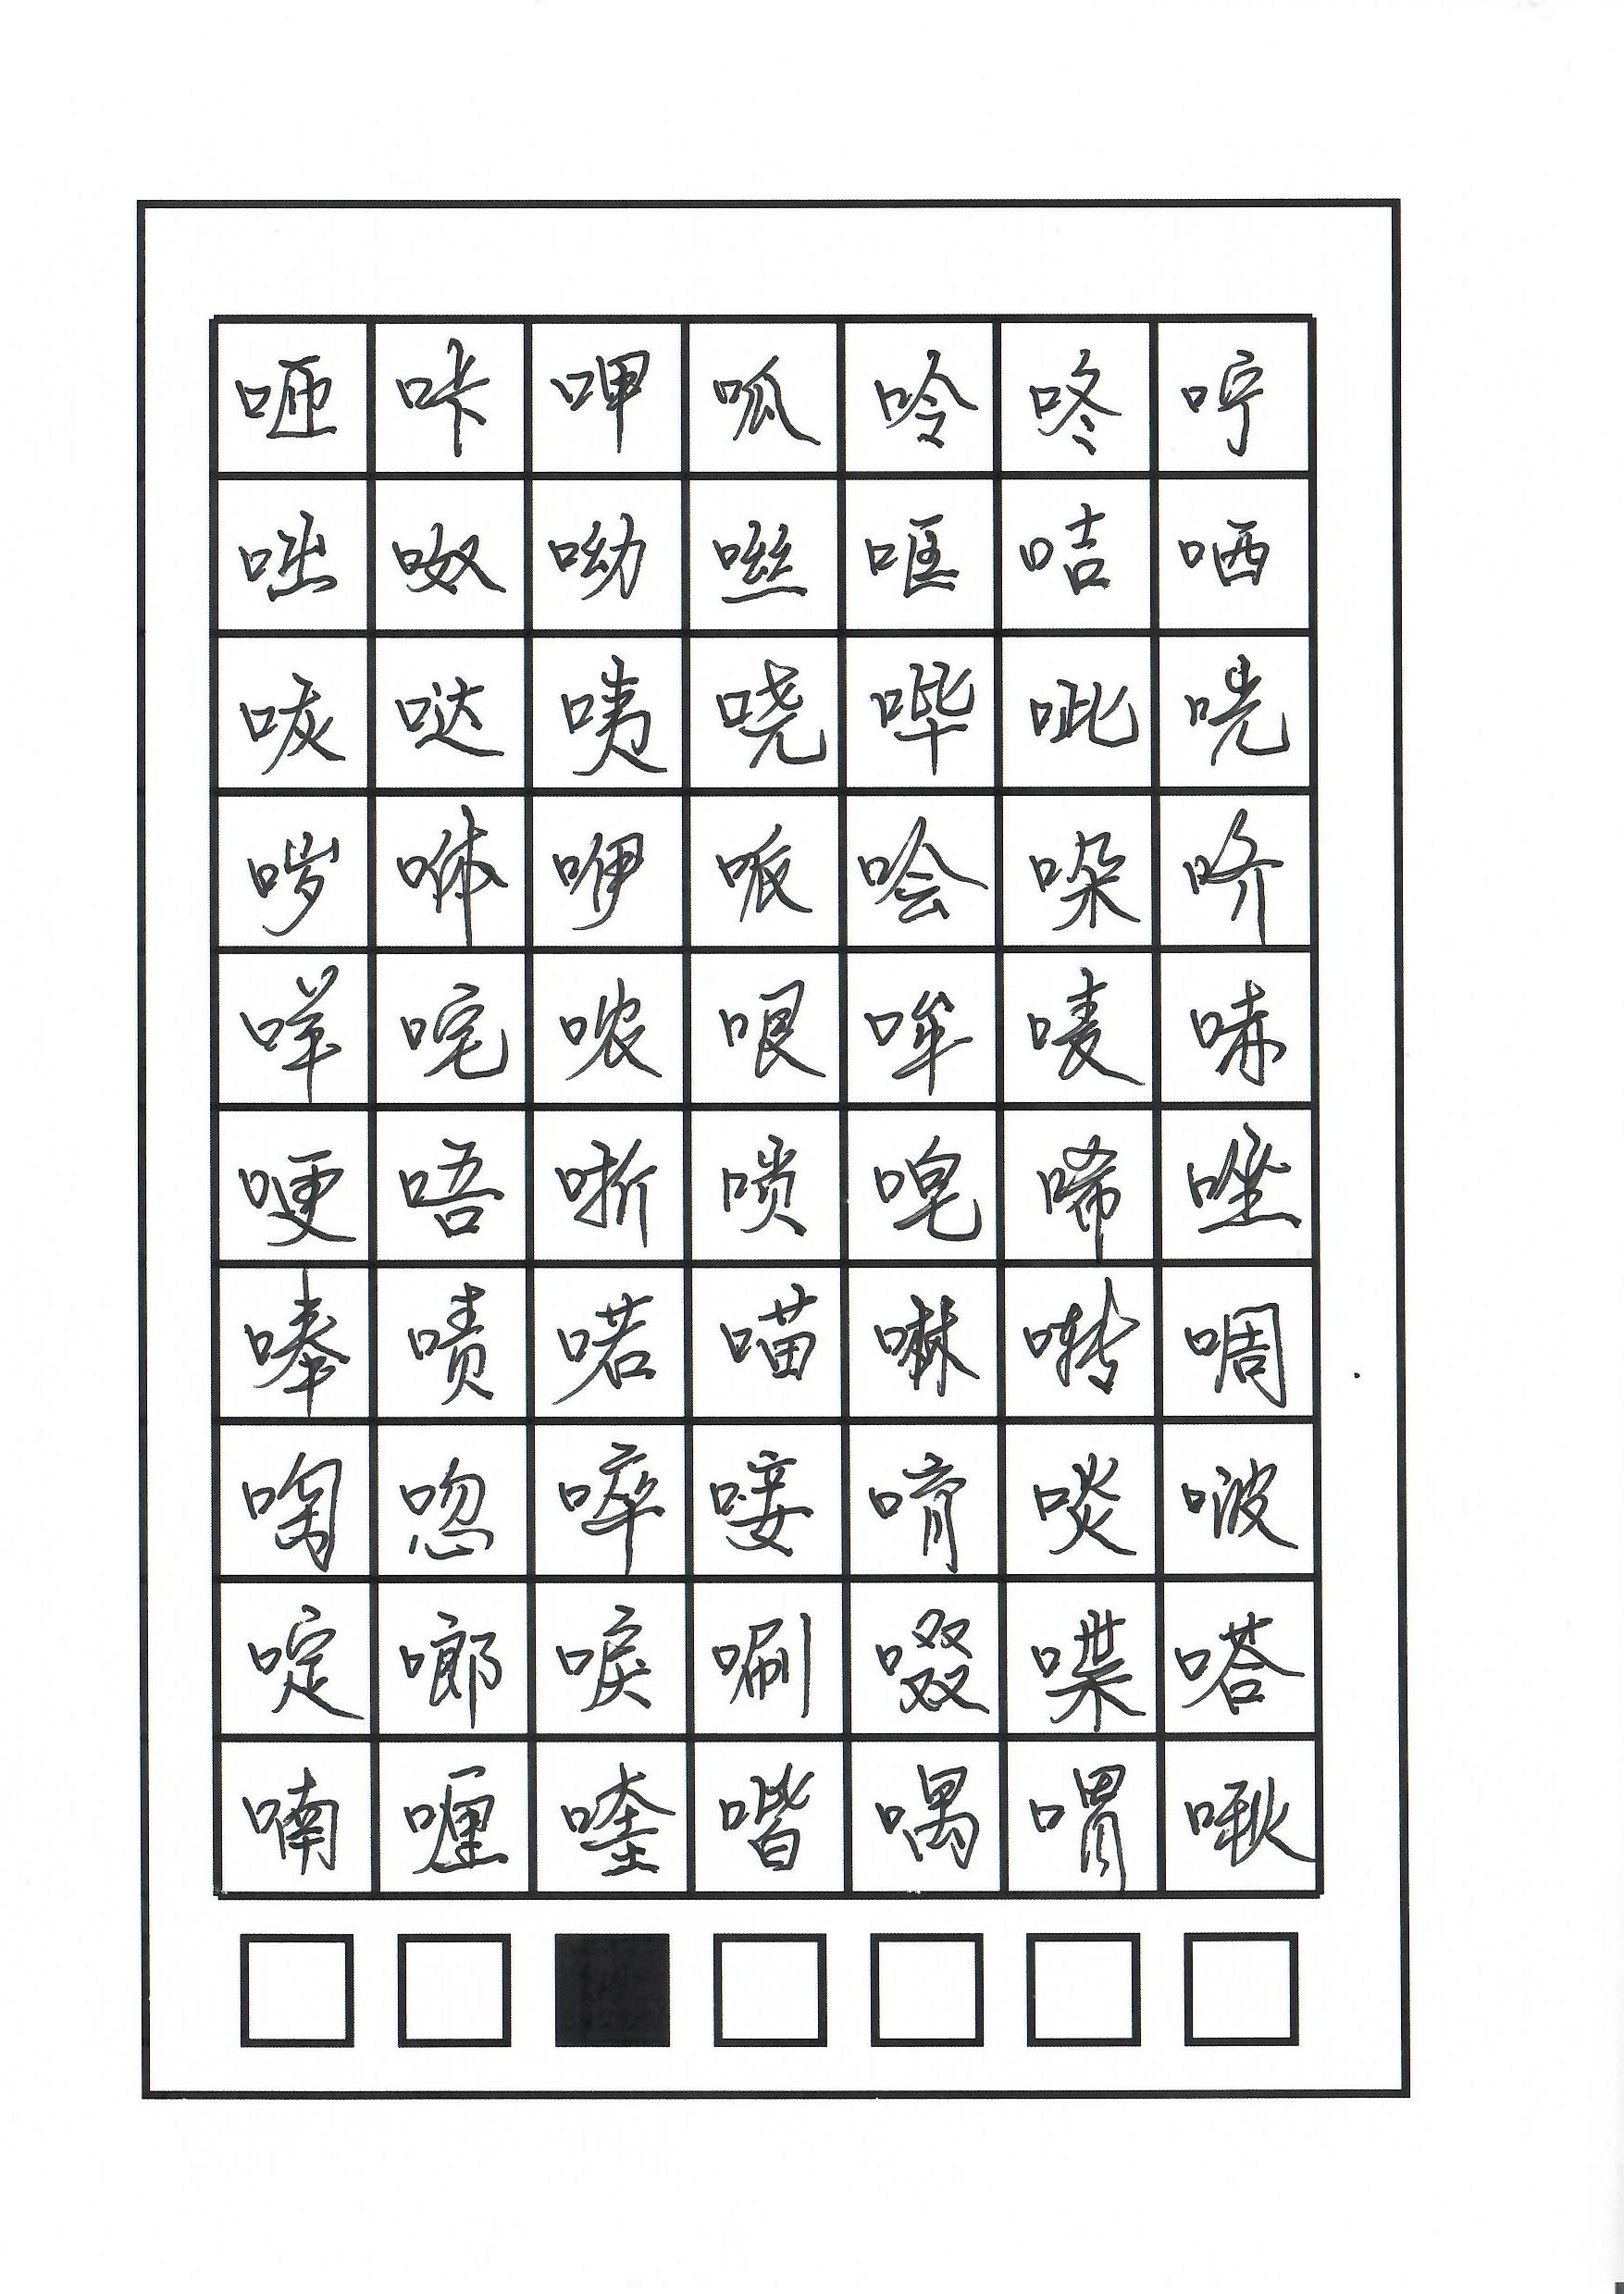 咂咔呷呱呤咚咛
咄呶呦咝哐咭哂
咴哒咦哓哔呲咣
哕咻咿哌哙哚哜
咩咤哝哏哞唛哧
哽唔哳唢唣唏唑
唪啧喏喵啉啭啁
啕唿啐唼唷啖啵
啶啷唳唰啜喋嗒
喃喱喹喈喁喟啾